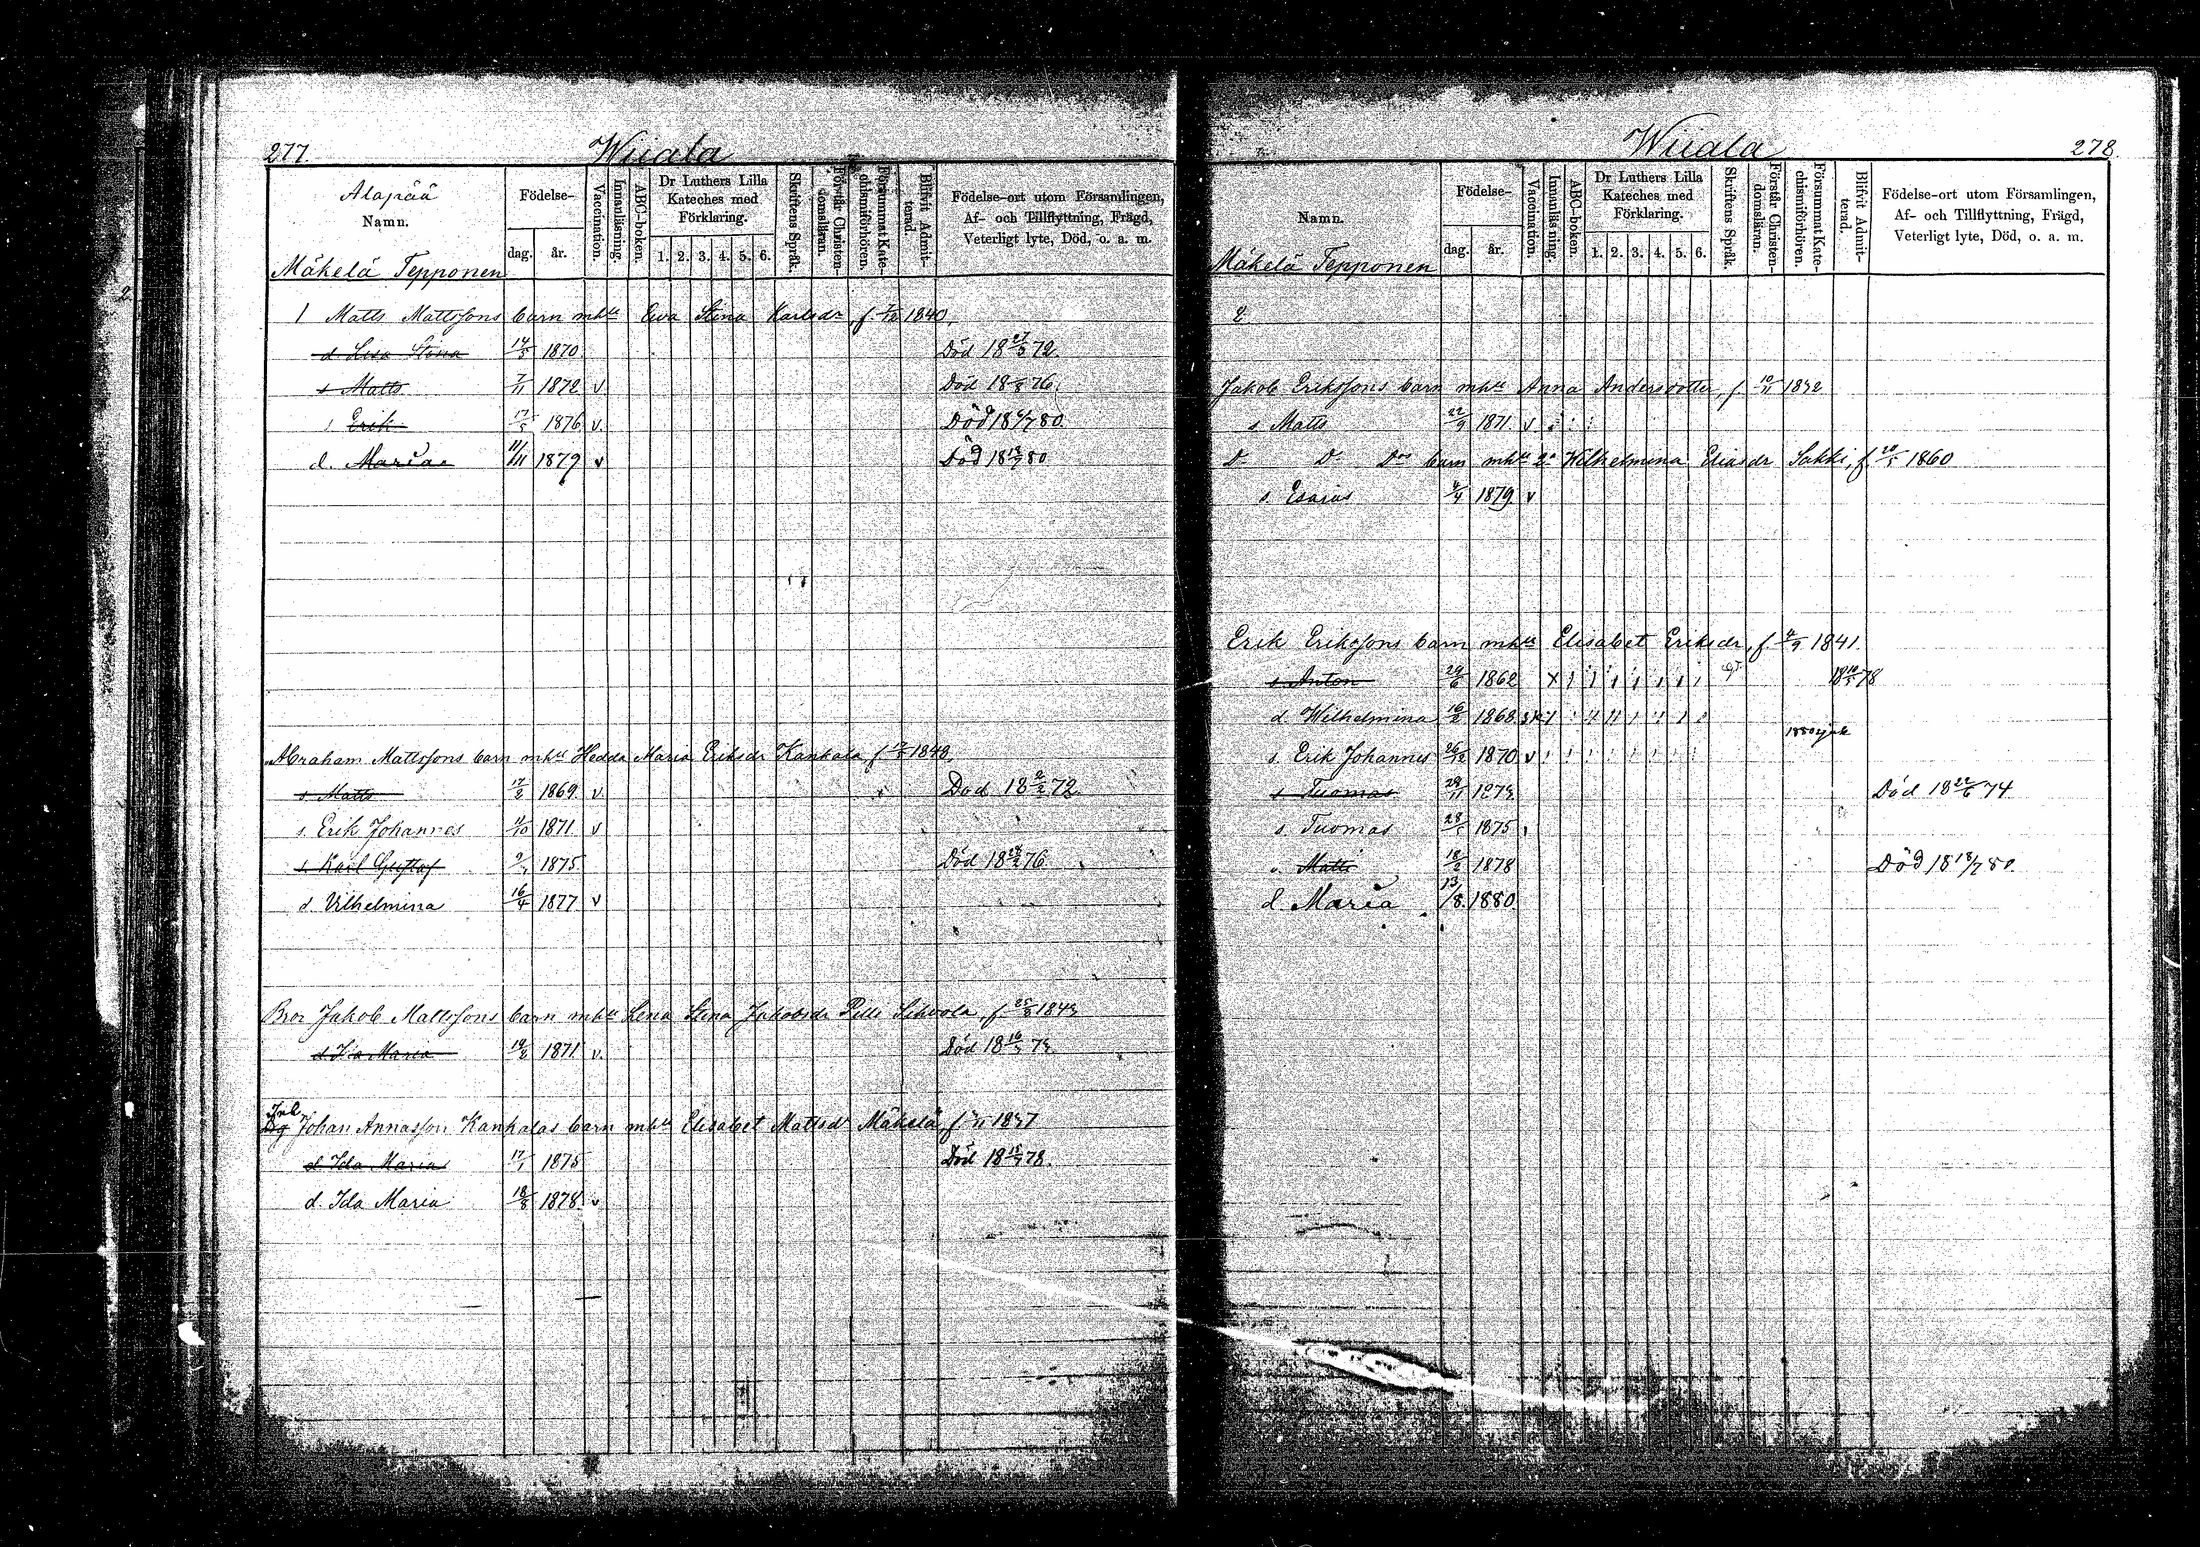 277.
Wiiala
Alapää
Namn.
Födelse-
dag. år.
Vaccination.
Innanläsning.
ABC-boken.
Dr Luthers Lilla
Kateches med
Förklaring.
1. 2. 3. 4. 5. 6.
Skriftens Språk.
Förstår Christen-
domsläran.
Försummat Kate-
chismiförhören.
Blifvit Admit-
terad.
Födelse-ort utom Församlingen,
Af- och Tillflyttning, Frägd,
Veterligt lyte, Död, o. a. m.
Mäkelä Tepponen
1 Matts Mattssons barn mhu Ewa Stina Karlsdr, f. 1840,
d. Lisa Stina 14/5 1870 Död 18 72.
s. Matts 7/11 1872 v. Död 18 76.
s. Erik 17/5 1876 v. Död 18 80.
d. Maria 11/11 1879 v Död 18 80
Abraham Mattssons barn mhu Hedda Maria Eriksdr Kankala f. 1840,
s. Matts 17/2 1869. v. Död 18 72.
s. Erik Johannes 11/10 1871. v
s. Karl Gustaf 1875. Död 18 76.
d. Vilhelmina 16/4 1877 v
Bror Jakob Mattssons barn mhu Lena Stina Jakobsdr Pilli Sihvola, f. 1843
d. Ida Maria 1871. v. Död 18 73.
Inh
Drg Johan Annasson Kankalas barn mhu Elisabet Mattsdr Mäkelä, f. 1847
d. Ida Maria 17/1 1875 Död 18 78.
d. Ida Maria 18/8 1878. v
Wiiala
278.
Namn.
Födelse-
dag. år.
Vaccination.
Innanläsning.
ABC-boken.
Dr Luthers Lilla
Kateches med
Förklaring.
1. 2. 3. 4. 5. 6.
Skriftens Språk.
Förstår Christen-
domsläran.
Försummat Kate-
chismiförhören.
Blifvit Admit-
terad.
Födelse-ort utom Församlingen,
Af- och Tillflyttning, Frägd,
Veterligt lyte, Död, o. a. m.
Mäkelä Tepponen
2
Jakob Erikssons barn mhu Anna Andersdotter, f. 1832
s. Matts 22/9 1871. v
D:o D:o D:os barn mhu 2:a Wilhelmina Eliasdr Sakki, f. 1860
s. Esaias 4/4 1879 v
Erik Erikssons barn mhu Elisabet Eriksdr, f. 4/9 1841.
s. Anton 29/6 1862 18 78
d. Wilhelmina 16/2 1868.
1880 sjuk
s. Erik Johannes 26/12 1870 v
s. Tuomas 28/11 1873. Död 18 22/6 74
s. Tuomas 1875
s. Matts 18/2 1878 Död 18 18/7 80.
d. Maria 13/8. 1880.